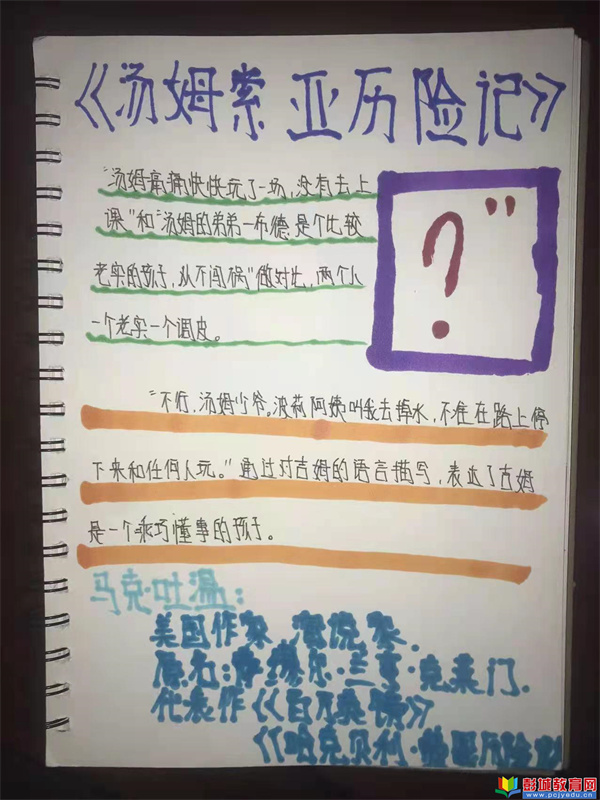 《汤姆索亚历险记》
"汤姆痛痛快快玩了一场,没有去上
课"和"汤姆的弟弟一布德,是个比较
老实的孩子,从不闯祸"做对比,两个人
一个老实一个调皮。
?"
"不行,汤姆少爷。波莉阿姨叫我去掉水,不准在路上停
下来和任何人玩。"通过对吉姆的语言描写,表达了吉姆
是一个乖巧懂事的孩子。
马克·吐温:
美国作家、演说家.
原名:萨缪尔·兰亨·克莱门.
代表作《百万英镑》
《哈克贝利·历险
彭城教育网
www.pcjyedu.cn